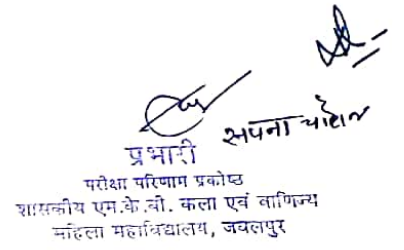 सपना चौहान
प्रभारी
परीक्षा परिणाम प्रकोष्ठ
शासकीय एम.के.बी. कला एवं वाणिज्य
महिला महाविद्यालय, जबलपुर